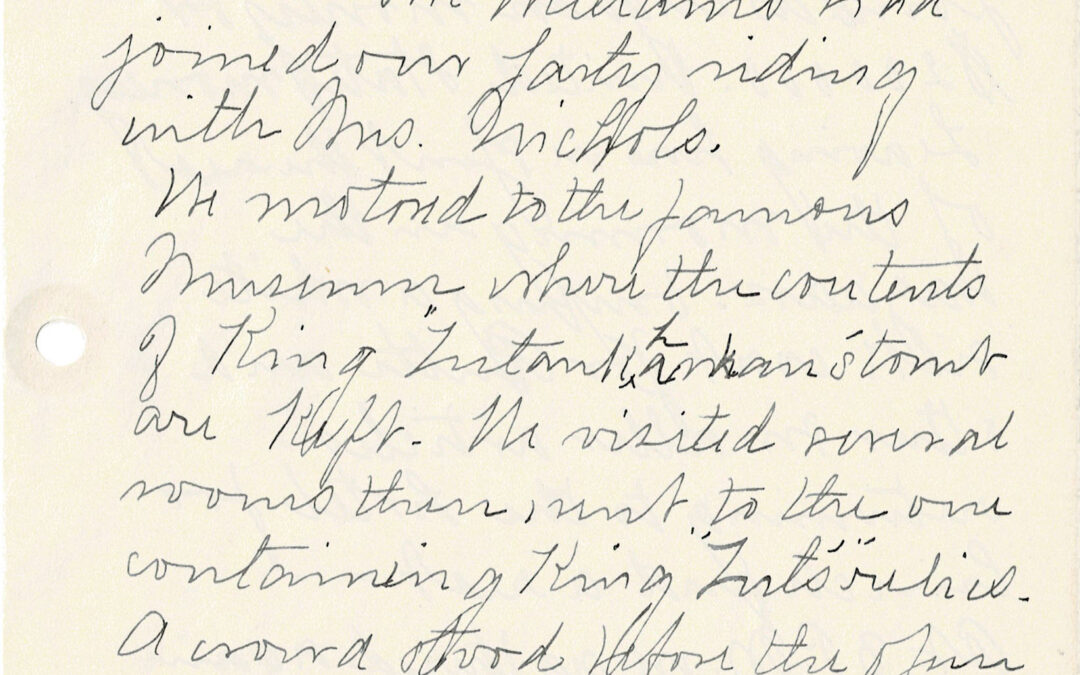 joined our party riding
with Mrs. Nichols.
We motored to the famous
Museum where the contents
of King "Tutankhaman's tomb
are Kept. We visited several
rooms then went to the one
containing King "Tut's" relics.
A crowd stood before the open